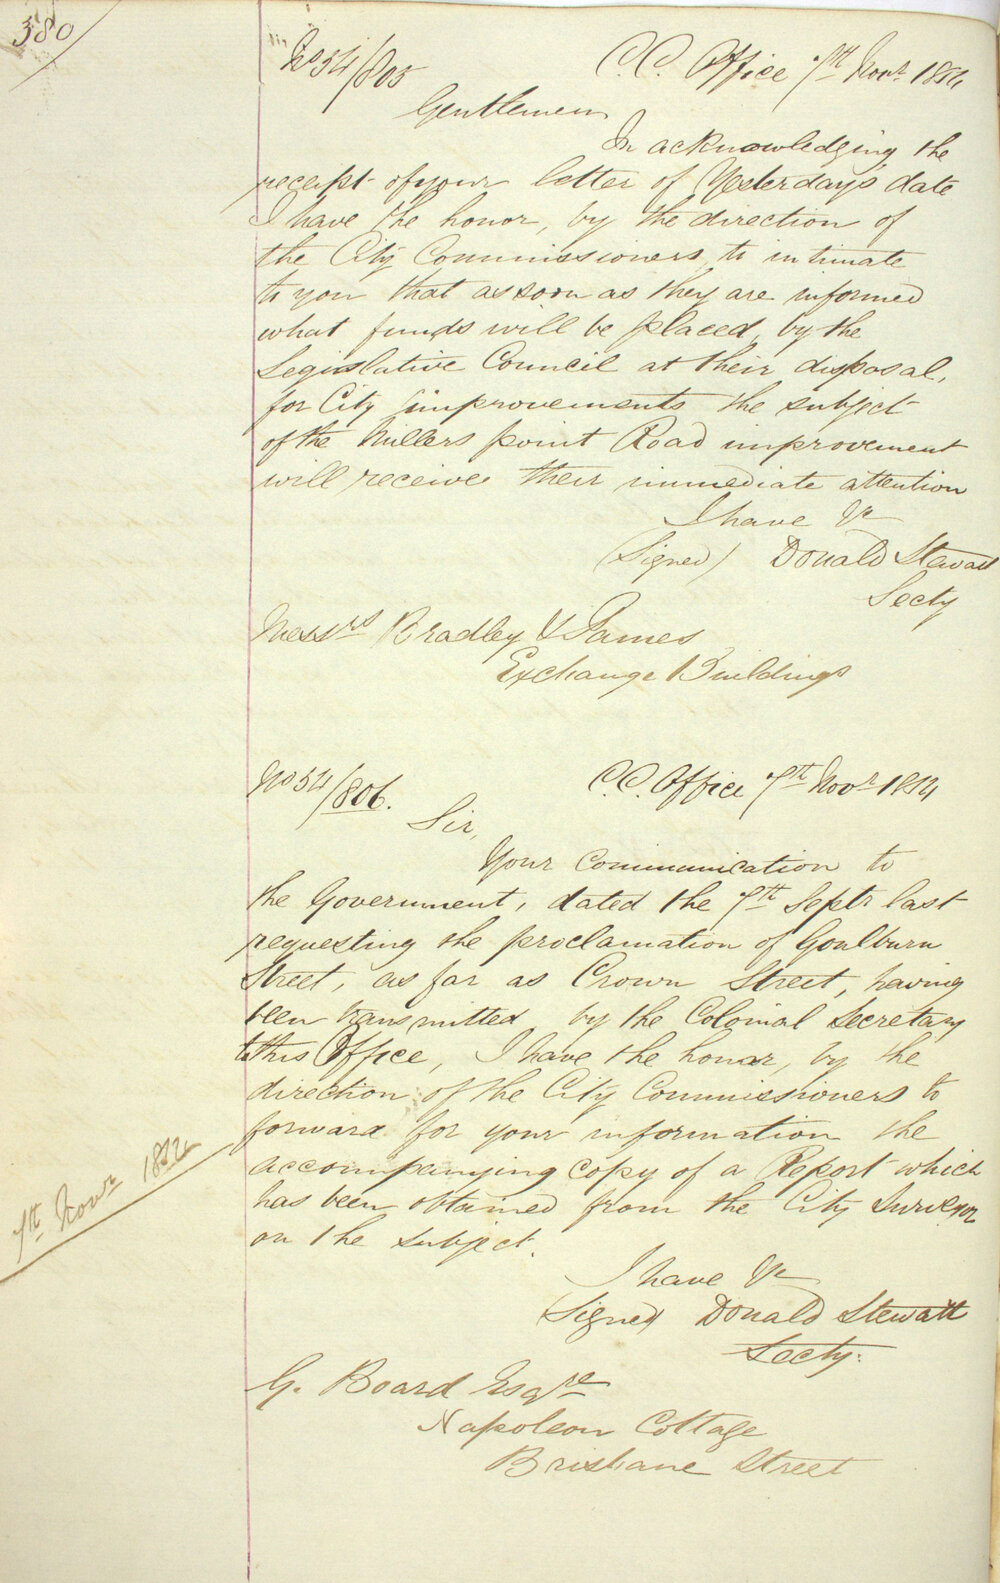 380
No 54/805 C.C. Office 7th Novr 1854
Gentlemen
In acknowledging the
receipt of your letter of Yesterday's date
I have the honor, by the direction of
the City Commissioners, to intimate
to you that as soon as they are informed
what funds will be placed, by the
Legislative Council at their disposal,
for City improvements the subject
of the Millers point Road improvement
will receive their immediate attention
I have &c
(Signed) Donald Stewart
Secty
Messrs Bradley & James
Exchange Buildings
No 54/806. C.C. Office 7th Novr 1854
Sir,
Your Communication to
the Government, dated the 7th Septr last
requesting the proclamation of Goulburn
Street, as far as Crown Street, having
been transmitted by the Colonial Secretary
to this Office, I have the honor, by the
direction of the City Commissioners to
forward for your information the
accompanying copy of a Report which
7th Novr 1854
has been obtained from the City Surveyor
on the subject.
I have &c
(Signed) Donald Stewart
Secty.
G. Board Esqre
Napoleon Cottage
Brisbane Street